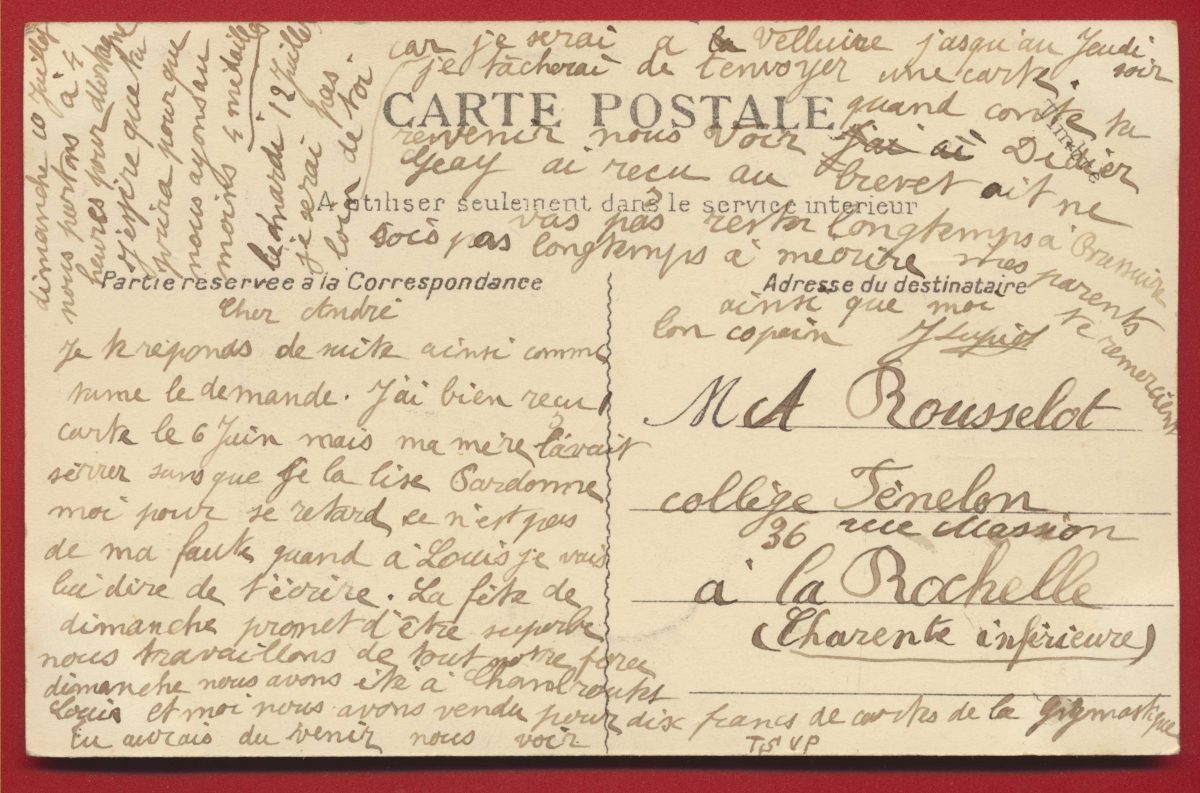 CARTE POSTALE
A utiliser seulement dans le service interieur
Partie réservée à la Correspondance
Cher André
Je te réponds de suite ainsi comme
tume le demande. J'ai bien reçu
carte le 6 Juin mais ma mère l'avait
serrer sans que je la lise Pardonne
moi pour se retard ce n'est pas
de ma faute quand à Louis je vais
lui dire de t'écrire. La fête de
dimanche promet d'être superbe
nous travaillons de tout notre force
dimanche nous avons été à
Louis et moi nous avons vendu pour dix francs de cartes de la gigmastique
tu aurais du venir nous voir
T.S.V.P
dimanche 10 Juillet
nous partons à 4
heures pour
j'espère que tu
prira pour que
nous ayons au
moins 4 médailles
le mardi 12 Juillet
je serai pas
loin de toi
car je serai a la Velluire jusqu'au Jeudi
soir
je tâcherai de t'envoyer une carte.
quand conte tu
revenir nous voir j'ai ai Didier
Geay ai reçu au brevet ait ne
vas pas rester longtemps à Brassuire
sois pas longtemps à m'écrire mes parents
te remercient
ainsi que moi
ton copain
Timbre
Adresse du destinataire
M A Rousselot
collège Fénelon
36 rue Massion
à la Rochelle
(Charente inférieure)